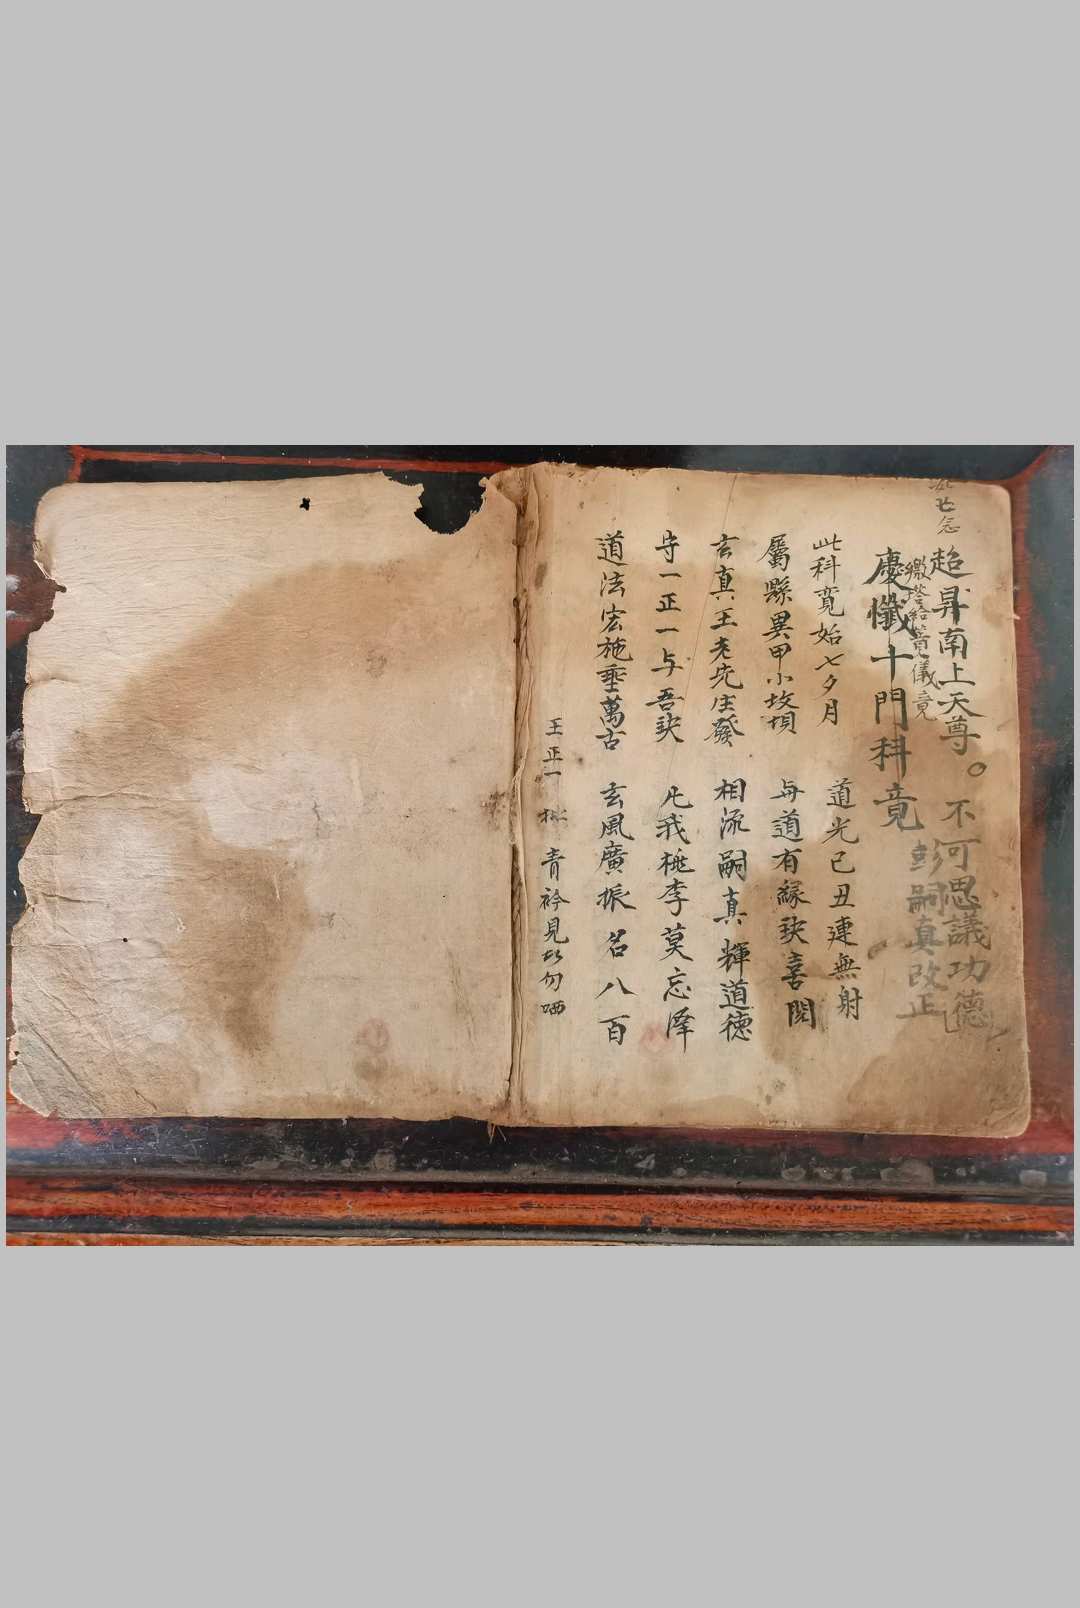 超昇南上天尊。不可思議功德
繳塔給籙儀竟
彭嗣真改正
慶懺十門科竟
此科竟始七夕月 道光己丑連無射
屬縣異甲小坟垻 毋道有緣訣喜閱
玄真王老先生發 相流嗣真輝道德
守一正一与吾訣 凡我桃李莫忘澤
道法宏施垂萬古 玄風廣振名八百
王正一 青衿見此勿哂